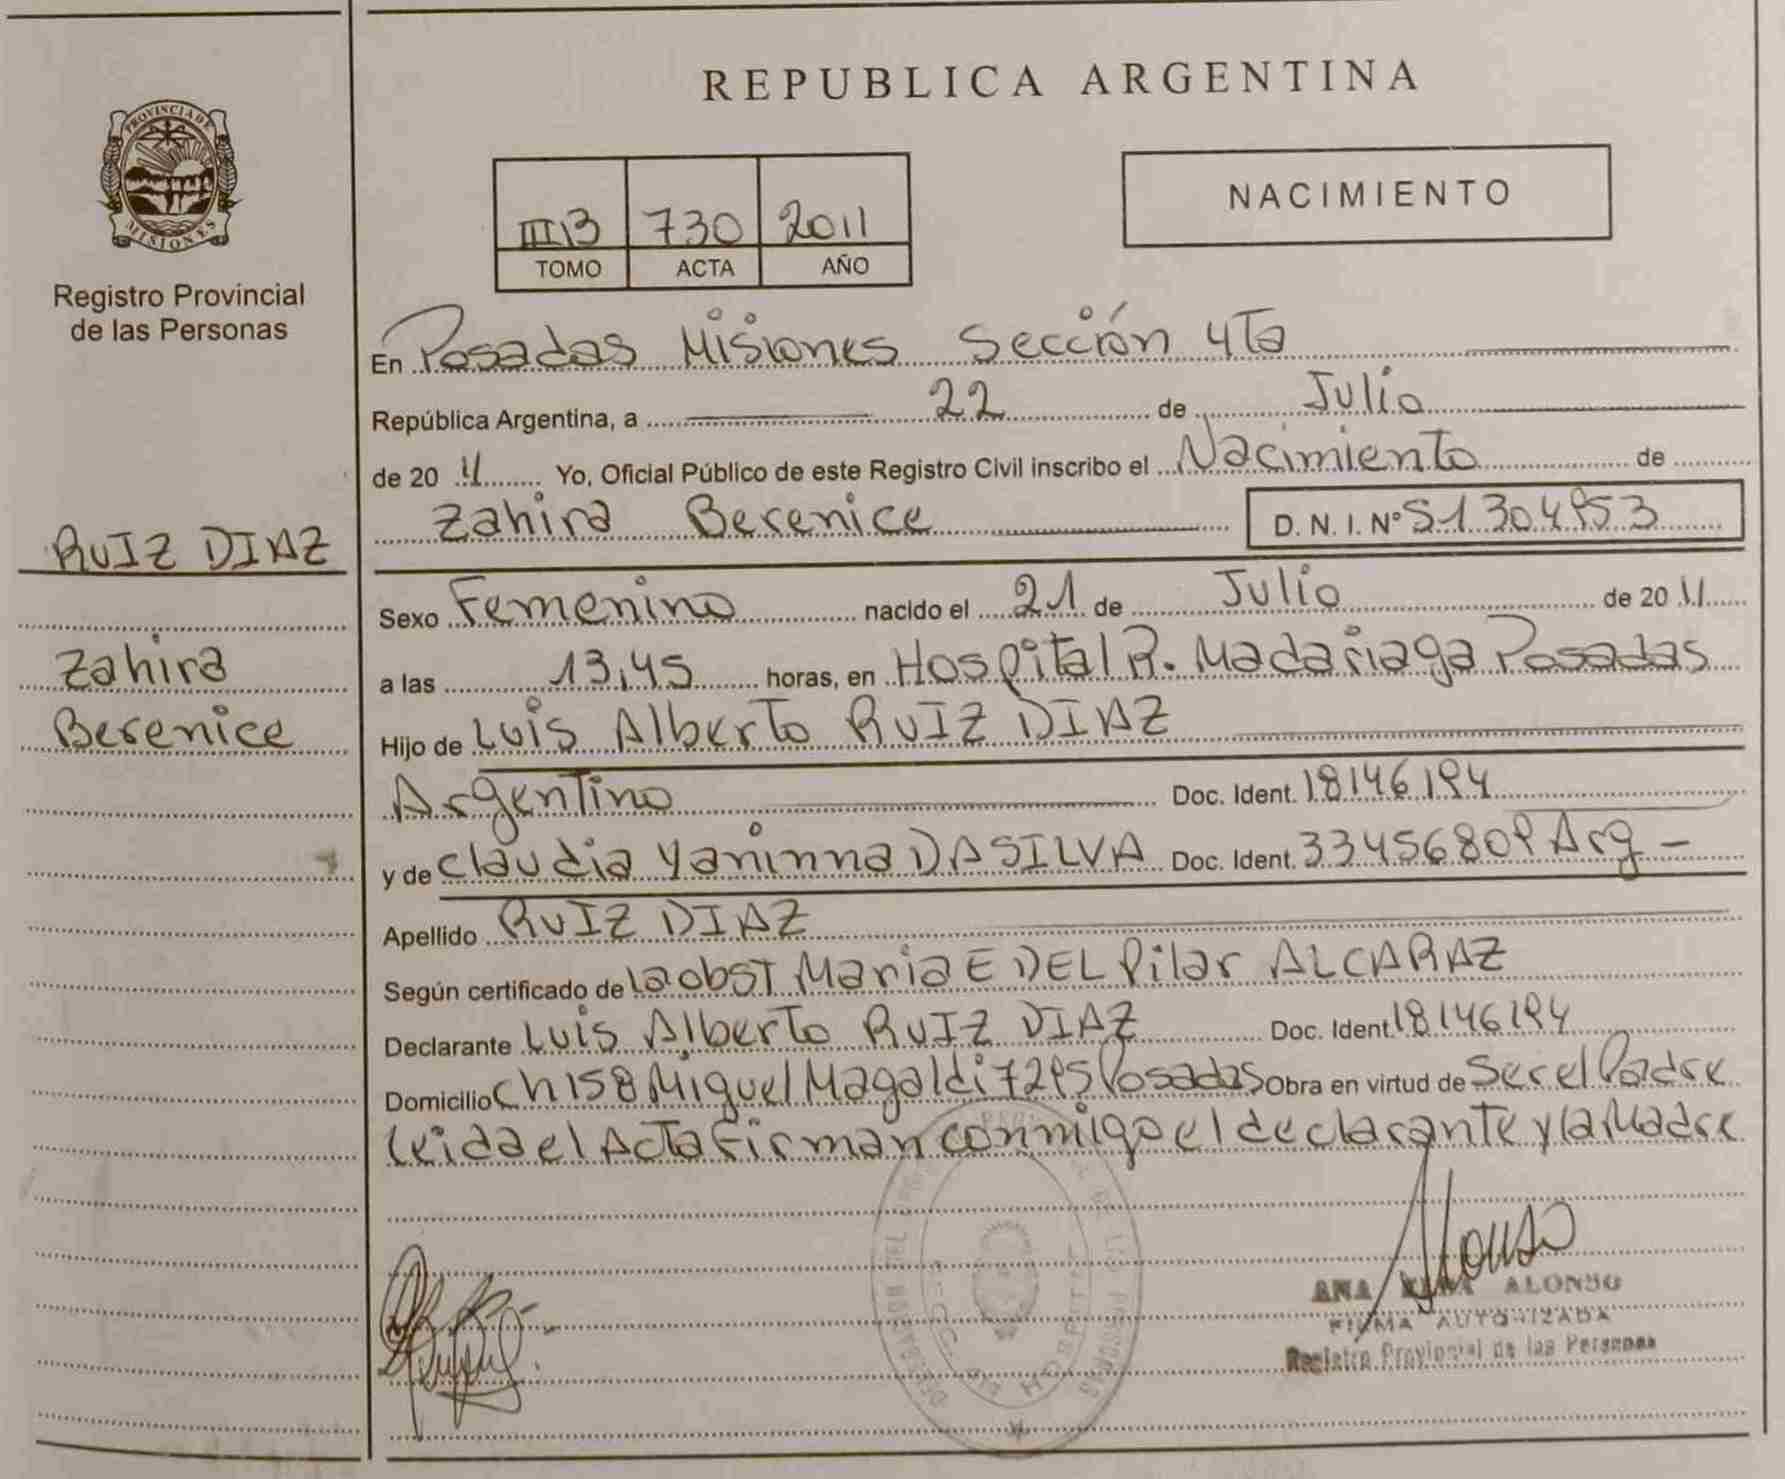 PROVINCIA DE
MISIONES
Registro Provincial
de las Personas
RUIZ DIAZ
Zahira
Berenice
REPUBLICA ARGENTINA
III B 730 2011
TOMO ACTA AÑO
NACIMIENTO
En Posadas Misiones Sección 4Ta
República Argentina, a 22 de Julio
de 20 11 Yo, Oficial Público de este Registro Civil inscribo el Nacimiento de
Zahira Berenice D. N. I. Nº 51304953
Sexo Femenino nacido el 21 de Julio de 20 11
a las 13,45 horas, en Hospital R. Madariaga Posadas
Hijo de Luis Alberto RUIZ DIAZ
Argentino Doc. Ident. 18146194
y de Claudia Yaninna DASILVA Doc. Ident. 33456809 Arg -
Apellido RUIZ DIAZ
Según certificado de la obst Maria E DEL Pilar ALCARAZ
Declarante Luis Alberto RUIZ DIAZ Doc. Ident. 18146194
Domicilio Ch 158 Miguel Magaldi 7295 Posadas Obra en virtud de Ser el Padre
leida el Acta Firman conmigo el declarante y la Madre
ANA ALONSO
FIRMA AUTORIZADA
Registro Provincial de las Personas